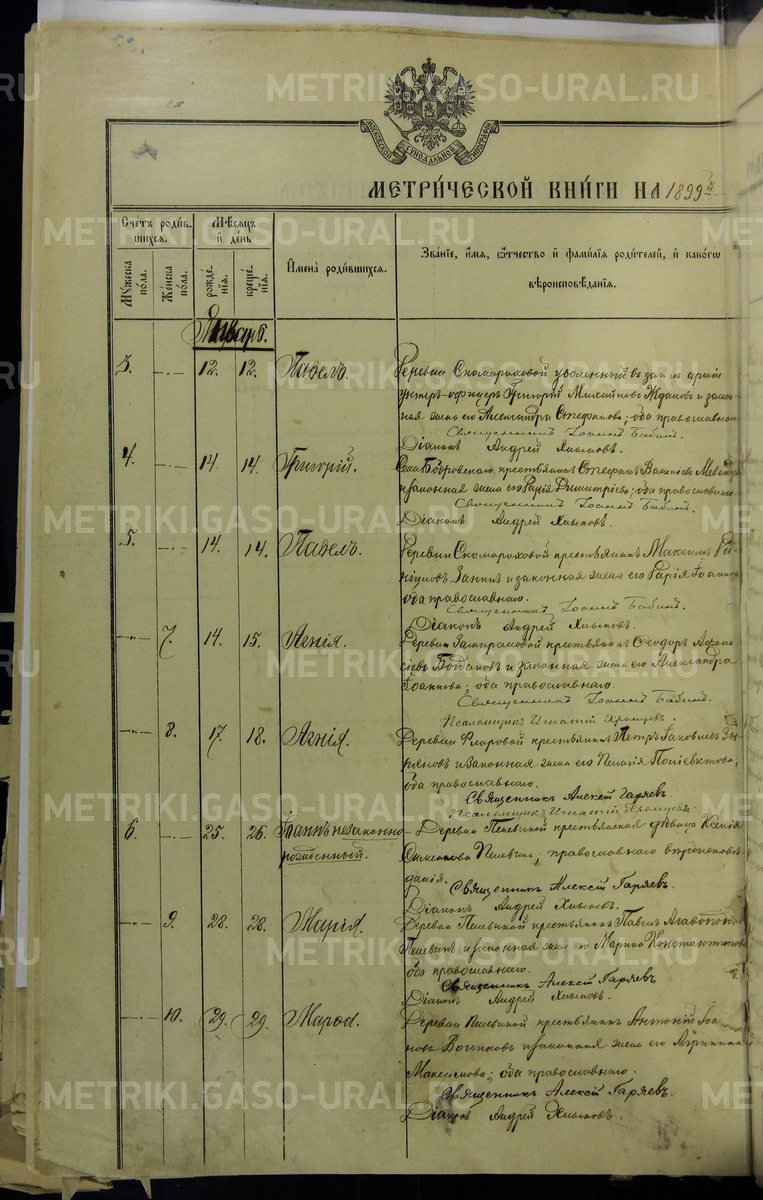 МОСКОВСКОЙ СѴНОДАЛЬНОЙ ТИПОГРАФІИ
МЕТРИ́ЧЕСКОЙ КНИ́ГИ НА 1899й
Сче́тъ роди́в-
шихся.
Мꙋ́жеска
по́ла.
Же́нска
по́ла.
Мѣ́сяцъ
и҆ день
рожде́-
нїя.
креще́-
нїя.
И҆мена̀ роди́вшихся.
Зва́нїе, и҆́мя, ѻ҆́тчество и҆ фами́лїя роди́телей, и҆ како́гѡ
вѣроисповѣ́данїя.
Январь.
3. 12. 12. Павелъ. Деревни Скомороховой уволенный въ запасъ арміи
унтеръ-офицеръ Григорій Михайловъ Ждановъ и закон-
ная жена его Александра Стефанова; оба православнаго
Священникъ Іоаннъ Бабинъ.
Діаконъ Андрей Хлыновъ.
4. 14. 14. Григорій. Села Бобровскаго крестьянинъ Стефанъ Василіевъ
и законная жена его Дарія Димитріева; оба православнаго
Священникъ Іоаннъ Бабинъ.
Діаконъ Андрей Хлыновъ.
5. 14. 14. Павелъ. Деревни Скомороховой крестьянинъ Максимъ
Занинъ и законная жена его Дарія Іоаннова
оба православнаго.
Священникъ Іоаннъ Бабинъ.
Діаконъ Андрей Хлыновъ.
7. 14. 15. Агнія. Деревни крестьянинъ Ѳеодоръ Аѳана-
сіевъ Богдановъ и законная жена его Александра
Іоаннова; оба православнаго.
Священникъ Іоаннъ Бабинъ.
Псаломщикъ Игнатій Хромцовъ.
8. 17. 18. Агнія. Деревни Фларовой крестьянинъ Петръ Іаковлевъ Зы-
ряновъ и законная жена его Пелагія Поліевктова;
оба православнаго.
Священникъ Алексій Гаряевъ
Псаломщикъ Игнатій Хромцовъ.
6. 25. 26. Іоаннъ незаконно-
рожденный. Деревни Пелевиной крестьянская дѣвица Ксенія
Пелевина; православнаго вѣроисповѣ-
данія.
Священникъ Алексій Гаряевъ.
Діаконъ Андрей Хлыновъ.
9. 28. 28. Марія. Деревни Пелевиной крестьянинъ Павелъ Агаѳоновъ
Пелевинъ и законная жена его Марина Константинова
оба православнаго.
Священникъ Алексій Гаряевъ
Діаконъ Андрей Хлыновъ.
10. 29. 29. Марѳа. Деревни Пелевиной крестьянинъ Антоній Іоан-
новъ Воченковъ и законная жена его Агриппина
Максимова; оба православнаго.
Священникъ Алексій Гаряевъ.
Діаконъ Андрей Хлыновъ.
METRIKI.GASO-URAL.RU